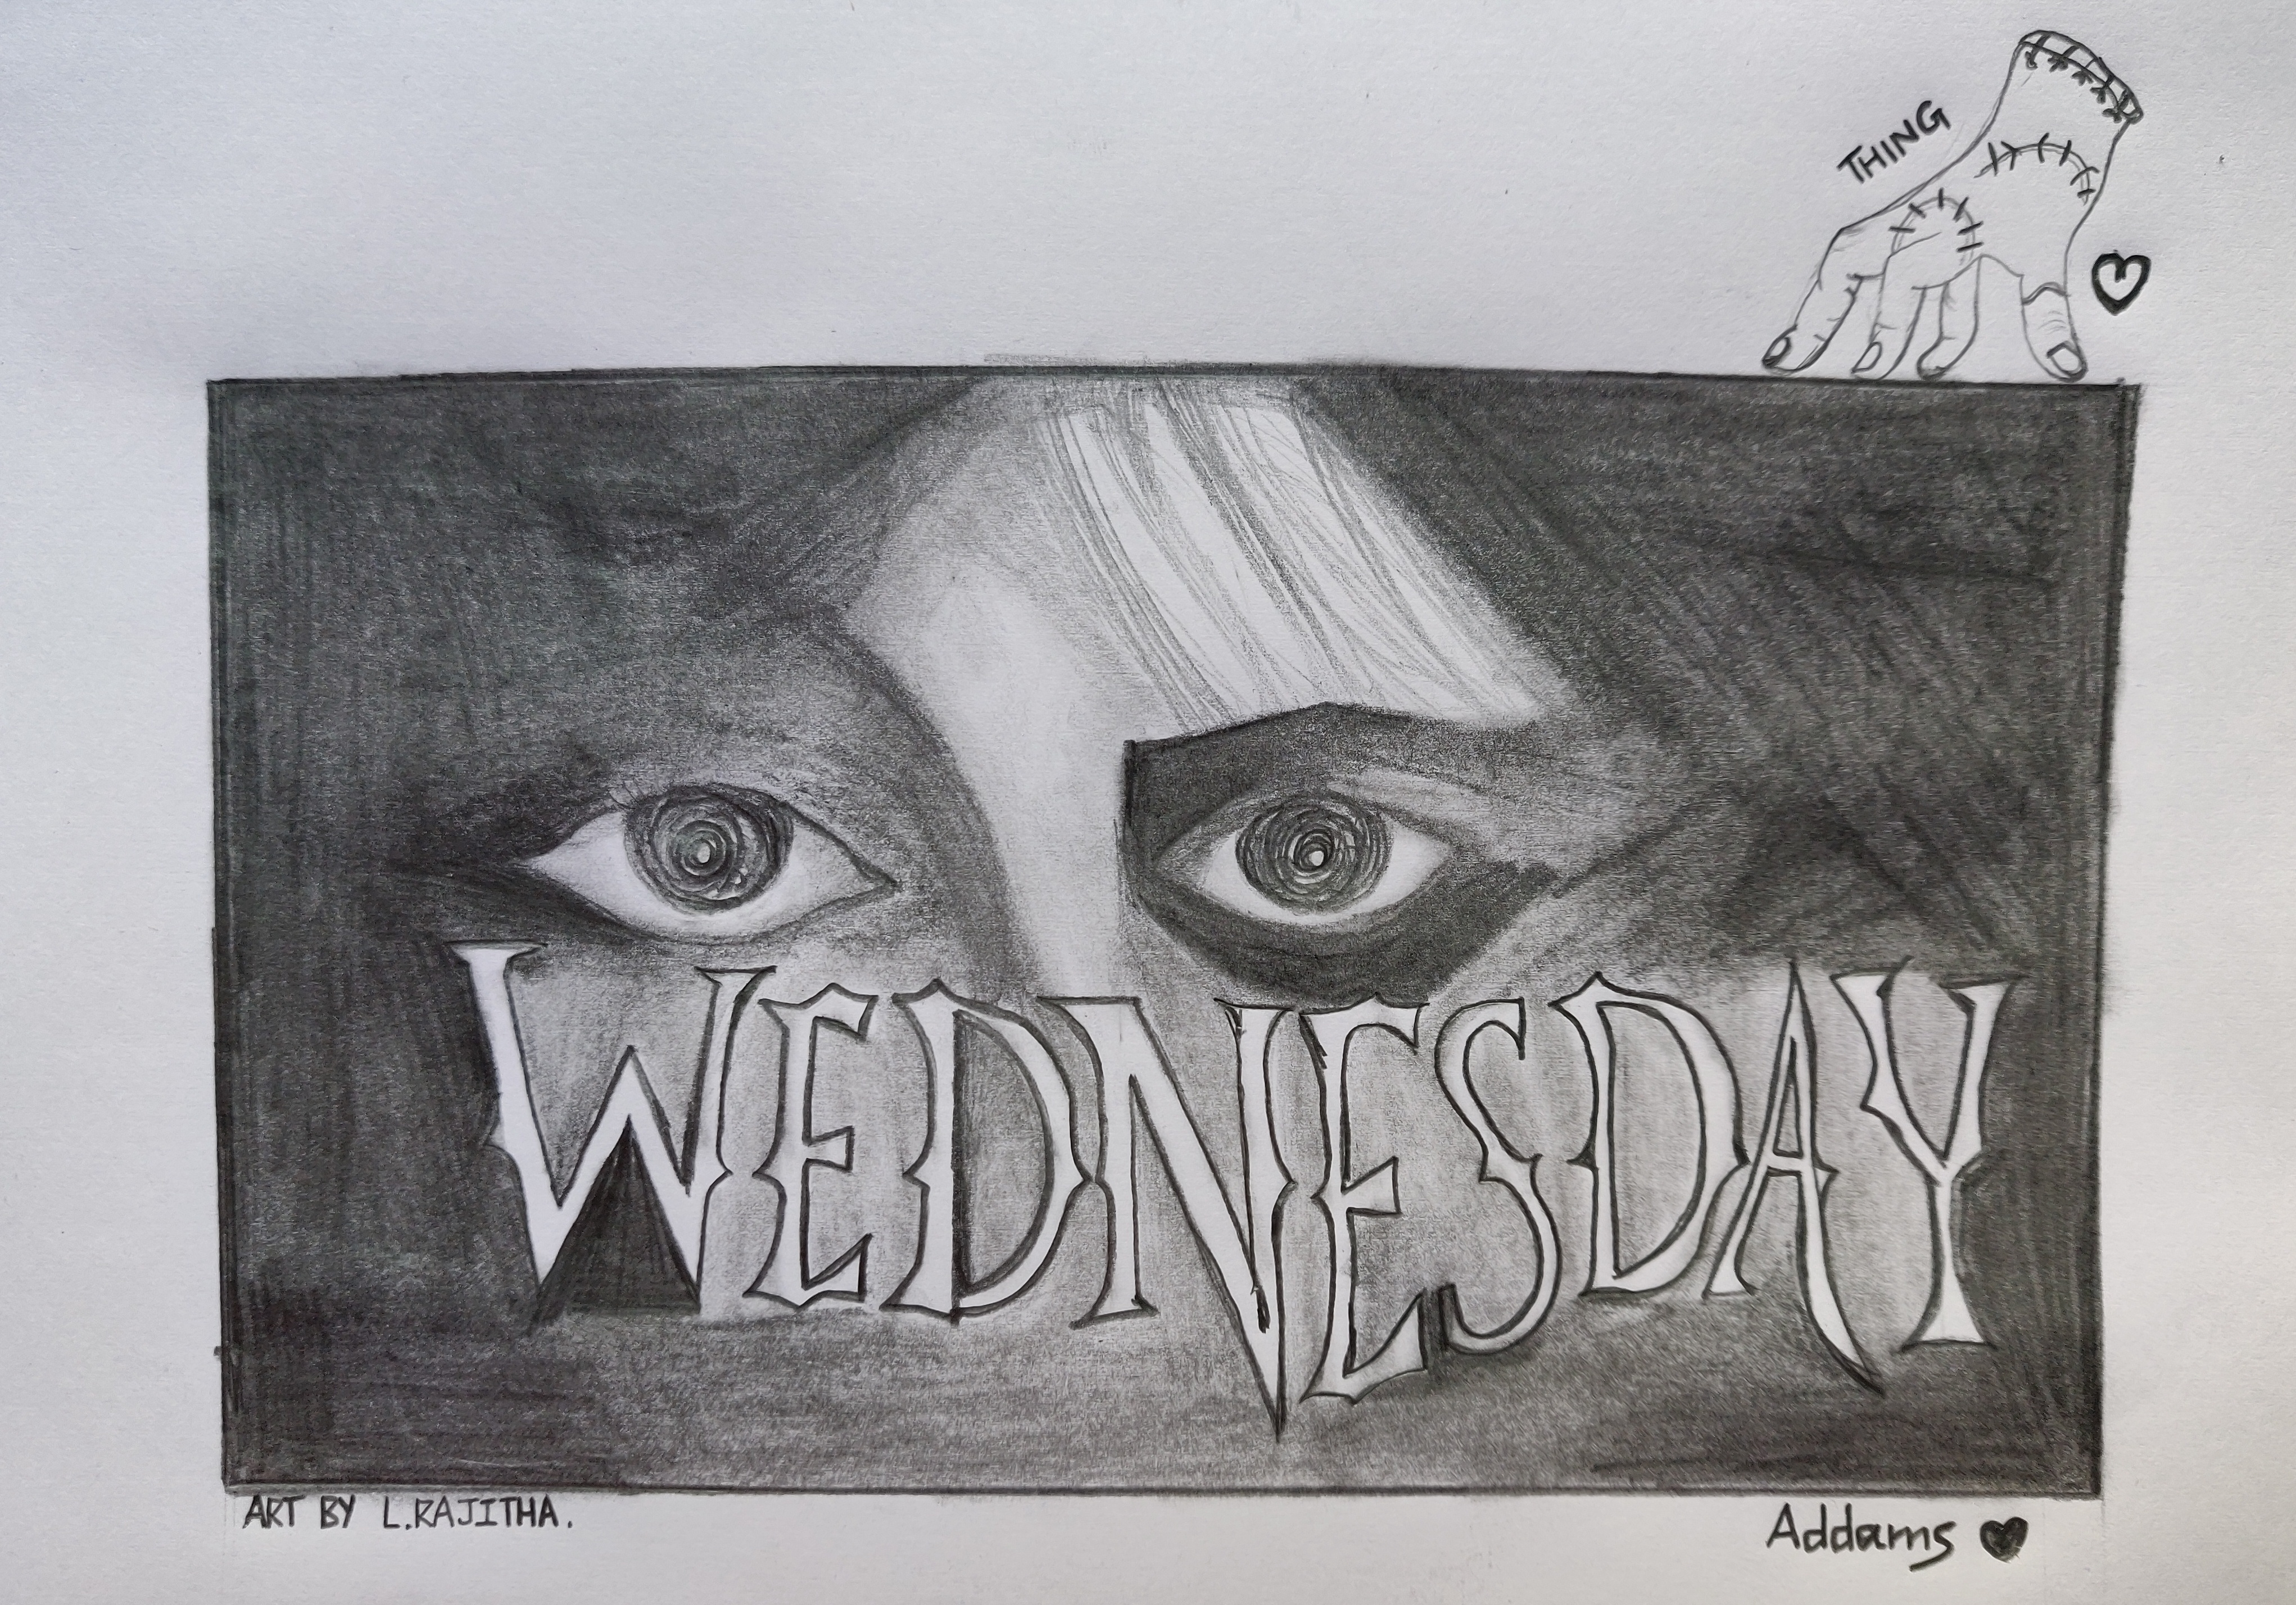 THING
WEDNESDAY
ART BY L.RAJITHA.
Addams